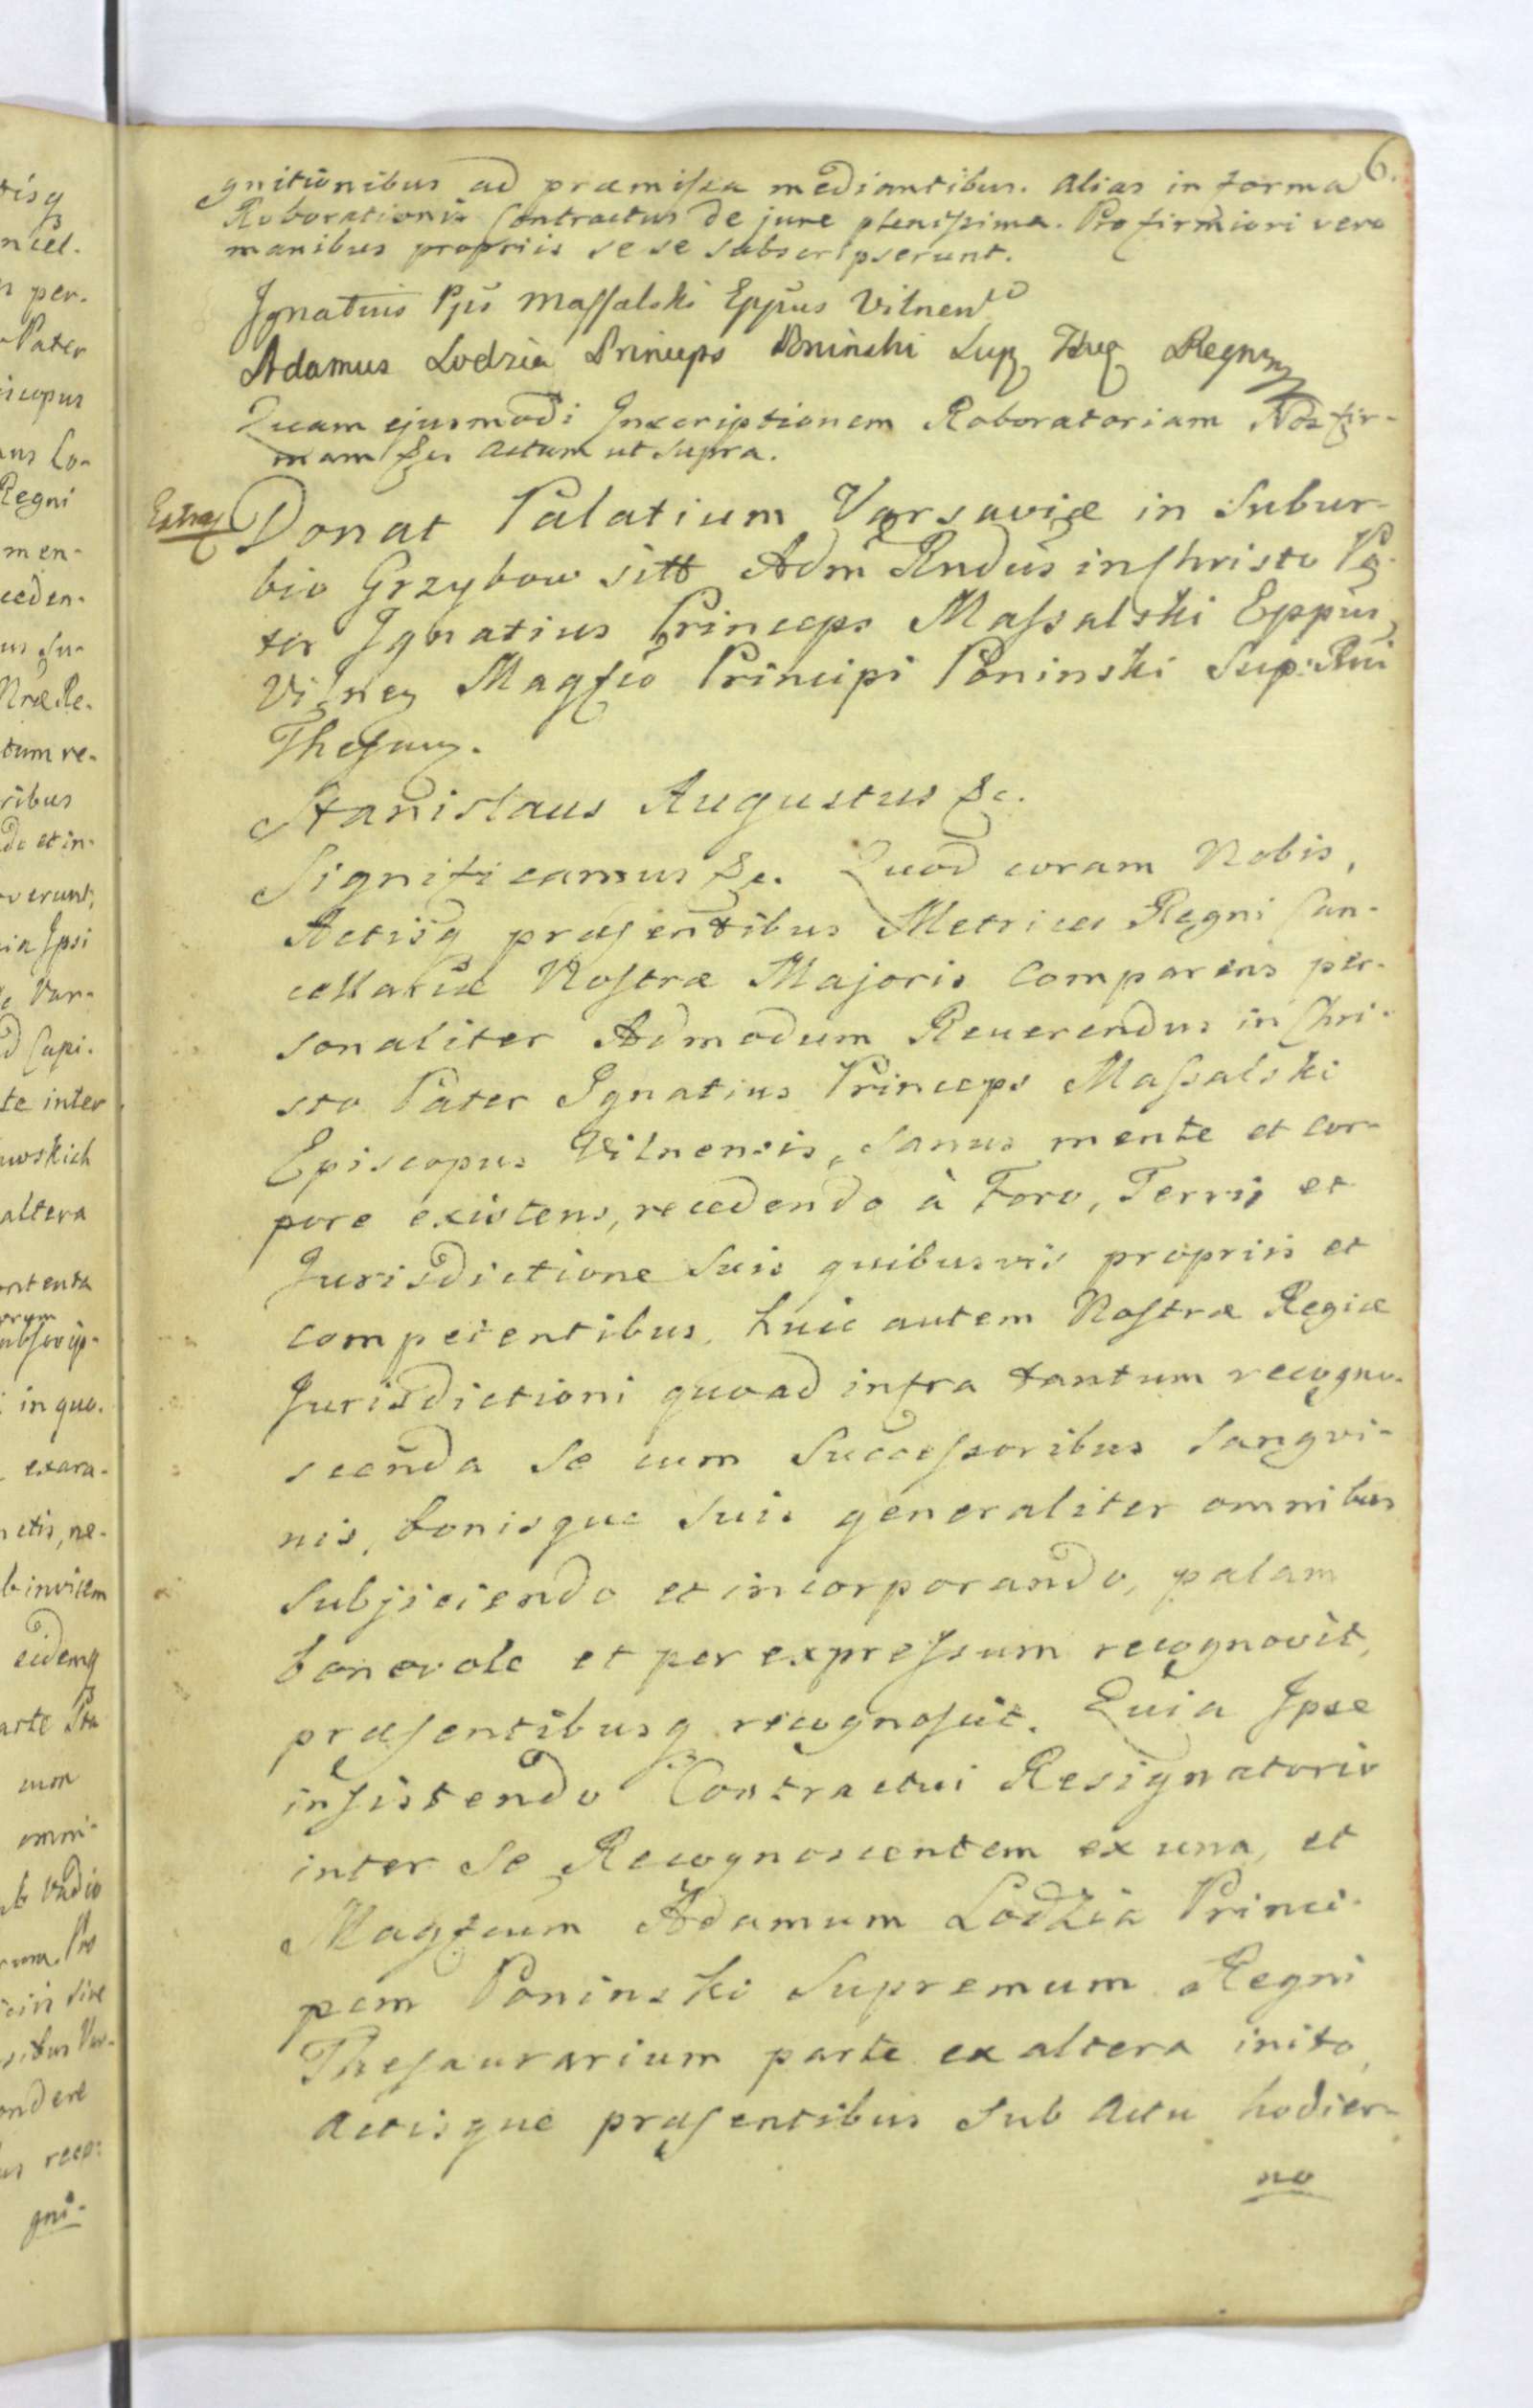 6.
gnitionibus ad præmissa mediantibus. Alias in forma
Roborationis Contractus de jure plenissima. Pro firmiori vero
manibus propriis se se subscripserunt.
Ignatius Pps Massalski Eppus Vilnen
Adamus Lodzia Princeps Poninski Sup Regni
Quam ejusmodi Inscriptionem Roboratoriam Nos fir-
mam &c. Actum ut supra.
Donat Palatium Varsaviæ in Subur-
bio Grzybow sitt Adm Rndus in Christo Pa-
ter Ignatius Princeps Massalski Eppus
Vilnen Magfco Principi Poninski Sup: Rni
Thesaur.
Stanislaus Augustus &c.
Significamus &c. Quod coram Nobis,
Actisq præsentibus Metrices Regni Can-
cellariæ Nostræ Majoris Comparens per-
sonaliter Admodum Reverendus in Chri-
sto Pater Ignatius Princeps Massalski
Episcopus Vilnensis, Sanus mente et cor-
pore existens, recedendo à Foro, Terris et
Jurisdictione Suis quibusvis propriis et
competentibus, huic autem Nostræ Regiæ
Jurisdictioni quoad infra tantum recogno-
scenda Se cum Successoribus Sangvi-
nis, bonisque Suis generaliter omnibus
Subjiciendo et incorporando, palam
benevole et per expressum recognovit,
præsentibusq recognoscit. Quia Ipse
insistendo Contractui Resignatorio
inter Se Recognoscentem ex una, et
Magfcum Adamum Lodzia Princi-
pem Poninski Supremum Regni
Thesaurarium parte ex altera inito,
Actisque præsentibus Sub Actu hodier-
no
tisq
ncel.
per.
Pater
icopus
ans Lo-
Regni
men-
ceden-
Nræ Re-
tum re-
ribus
do et in-
overunt,
Ipsi
Var-
Capi-
te inter
owskich
altera
ontenta
in quo.
exara-
ctis, ne-
b invicem
eidemq
arte
omni-
b Vadio
ondere
recog:
gni-